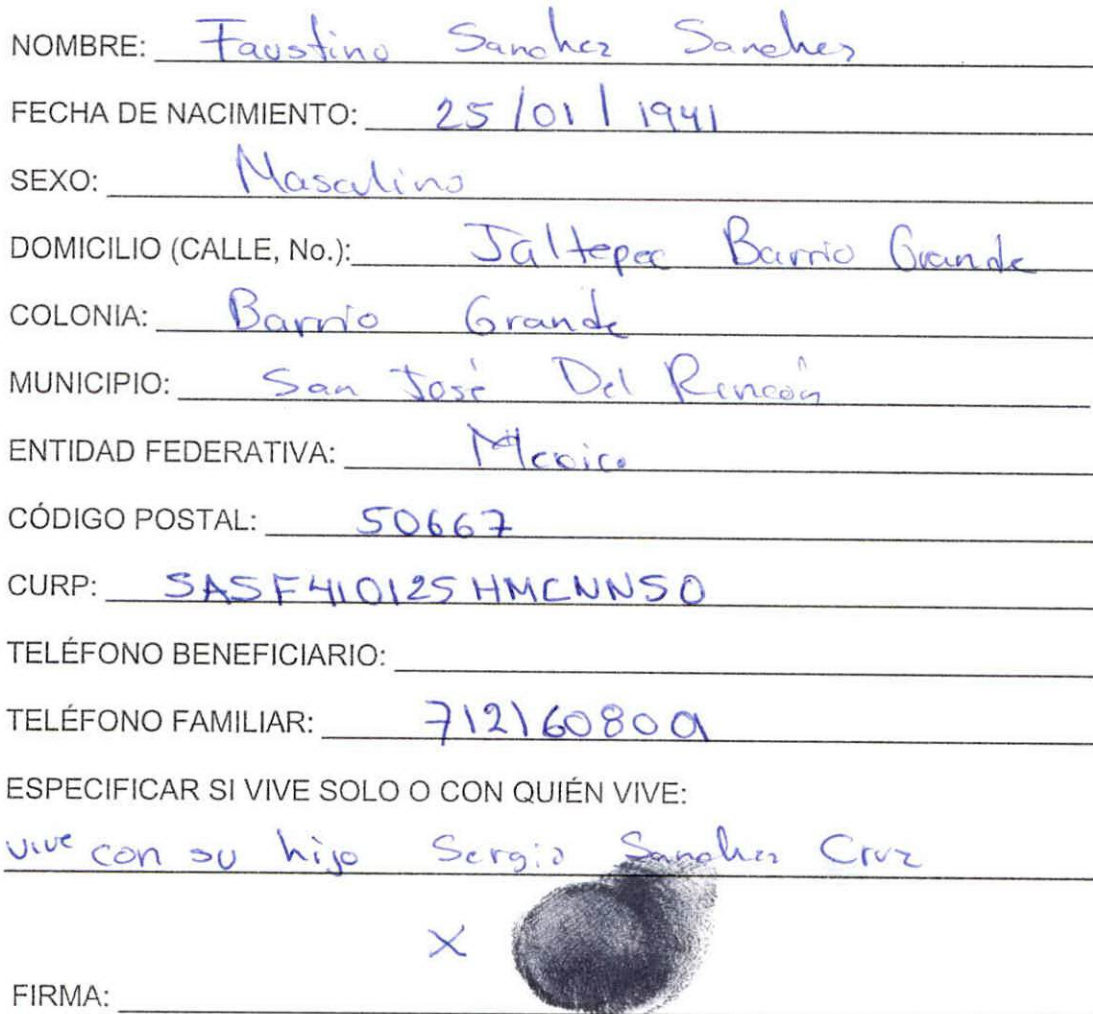 NOMBRE: Faustino Sanchez Sanchez
FECHA DE NACIMIENTO: 25/01/1941
SEXO: Masculino
DOMICILIO (CALLE, No.): Jaltepec Barrio Grande
COLONIA: Barrio Grande
MUNICIPIO: San José Del Rincón
ENTIDAD FEDERATIVA: Mexico
CÓDIGO POSTAL: 50667
CURP: SASF410125HMCNNS0
TELÉFONO BENEFICIARIO:
TELÉFONO FAMILIAR:
ESPECIFICAR SI VIVE SOLO O CON QUIÉN VIVE:
vive con su hijo Sergio Sanchez Cruz
X
FIRMA: